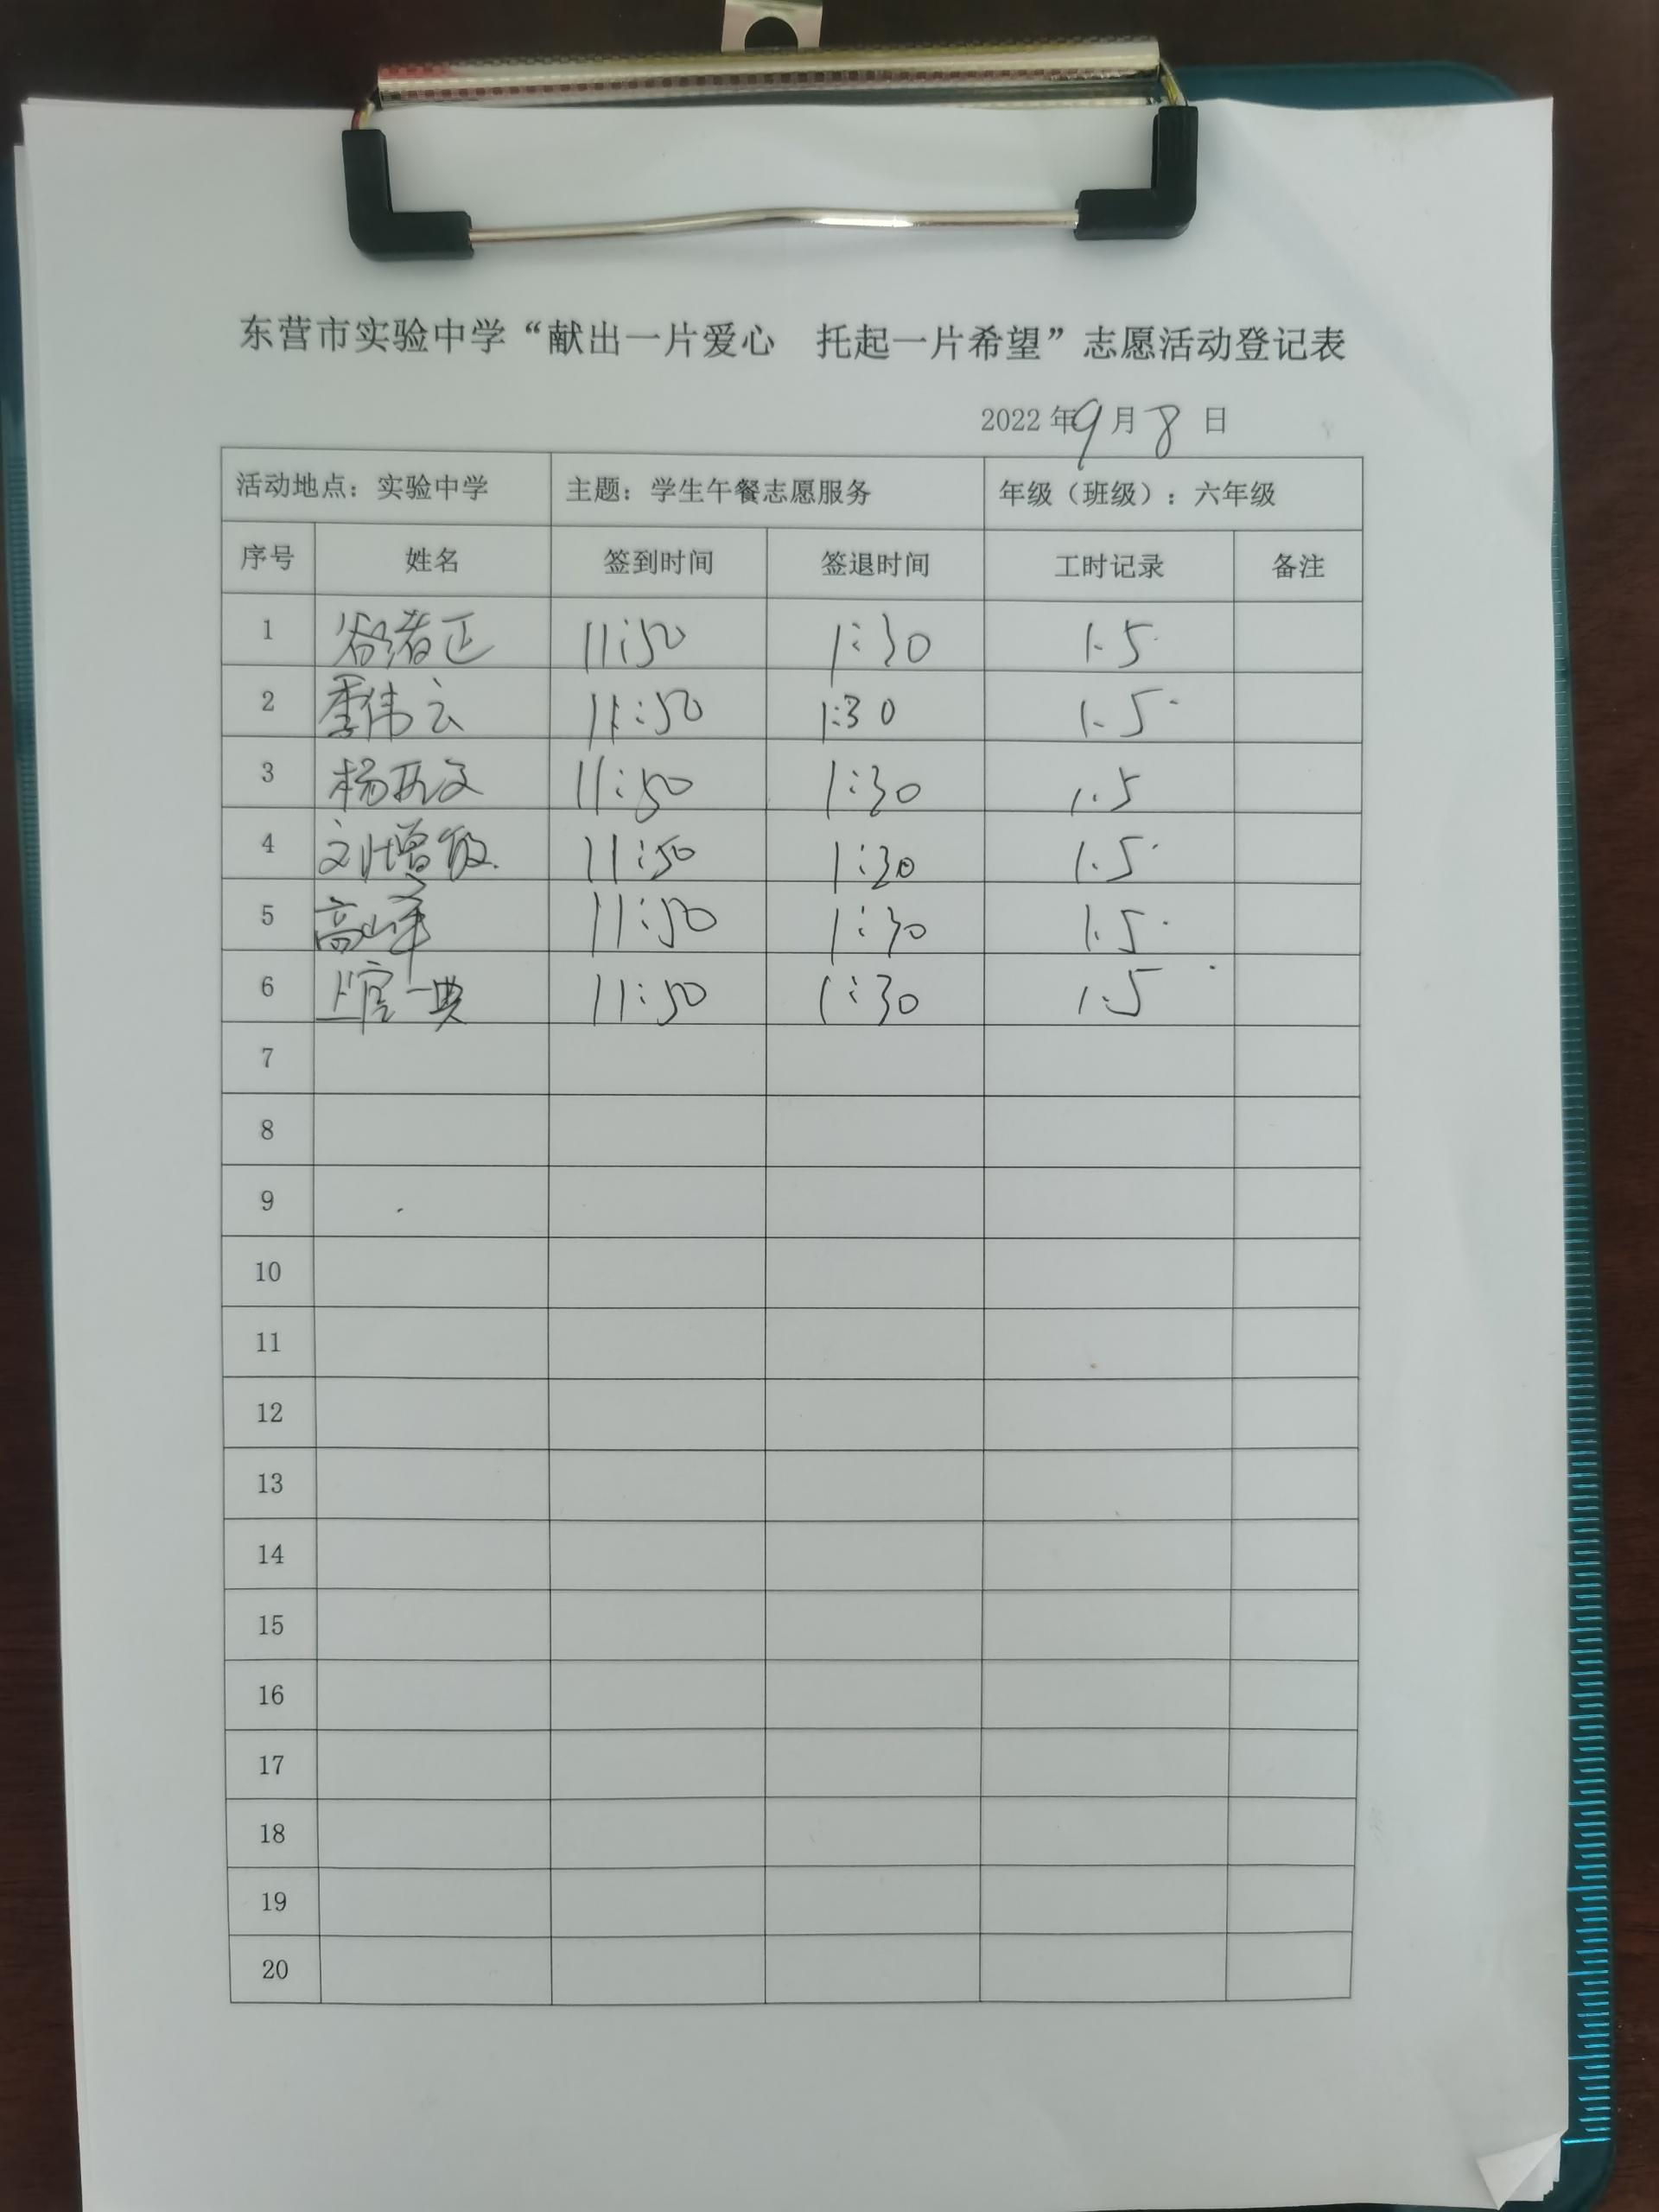 东营市实验中学“献出一片爱心　托起一片希望”志愿活动登记表
2022 年 9 月 8 日
活动地点：实验中学 主题：学生午餐志愿服务 年级（班级）：六年级
序号 姓名 签到时间 签退时间 工时记录 备注
1 11:50 1:30 1.5
2 季伟云 11:50 1:30 1.5
3 杨 11:50 1:30 1.5
4 刘增 11:50 1:30 1.5
5 高峰 11:50 1:30 1.5
6 上官一典 11:50 1:30 1.5
7
8
9
10
11
12
13
14
15
16
17
18
19
20